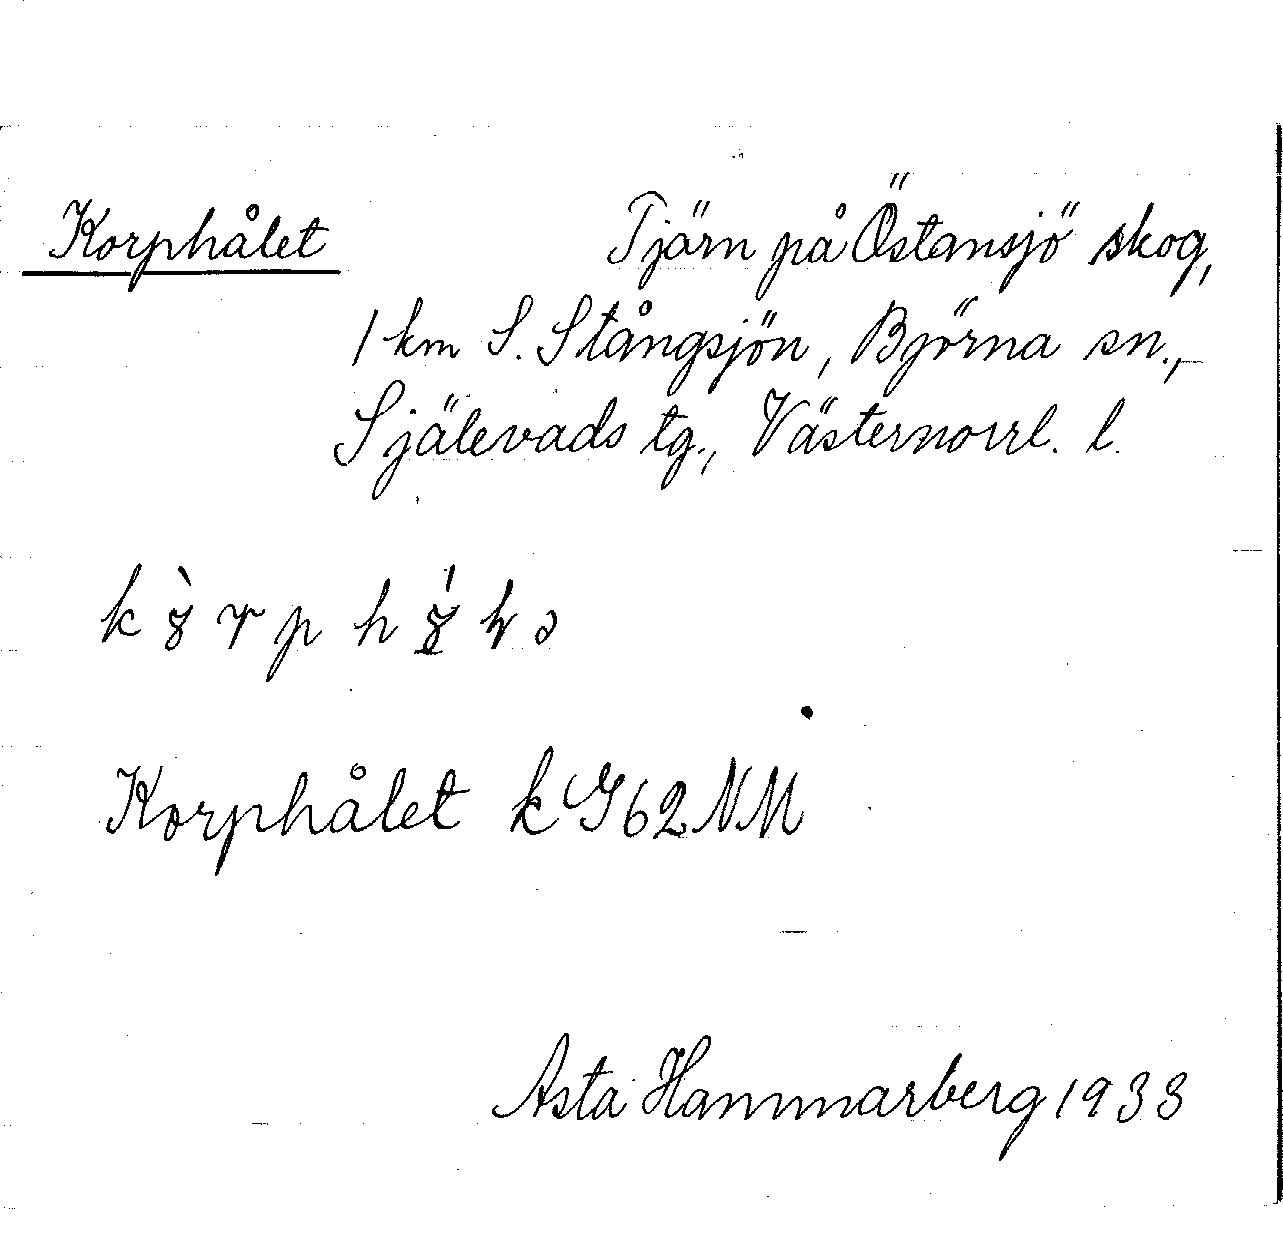 Korphålet Tjärn på Östansjö skog,
1 km S. Stångsjön, Björna sn.,
Själevads tg., Västernorrl. l.
Korphålet k G62NM
Asta Hammarberg 1933